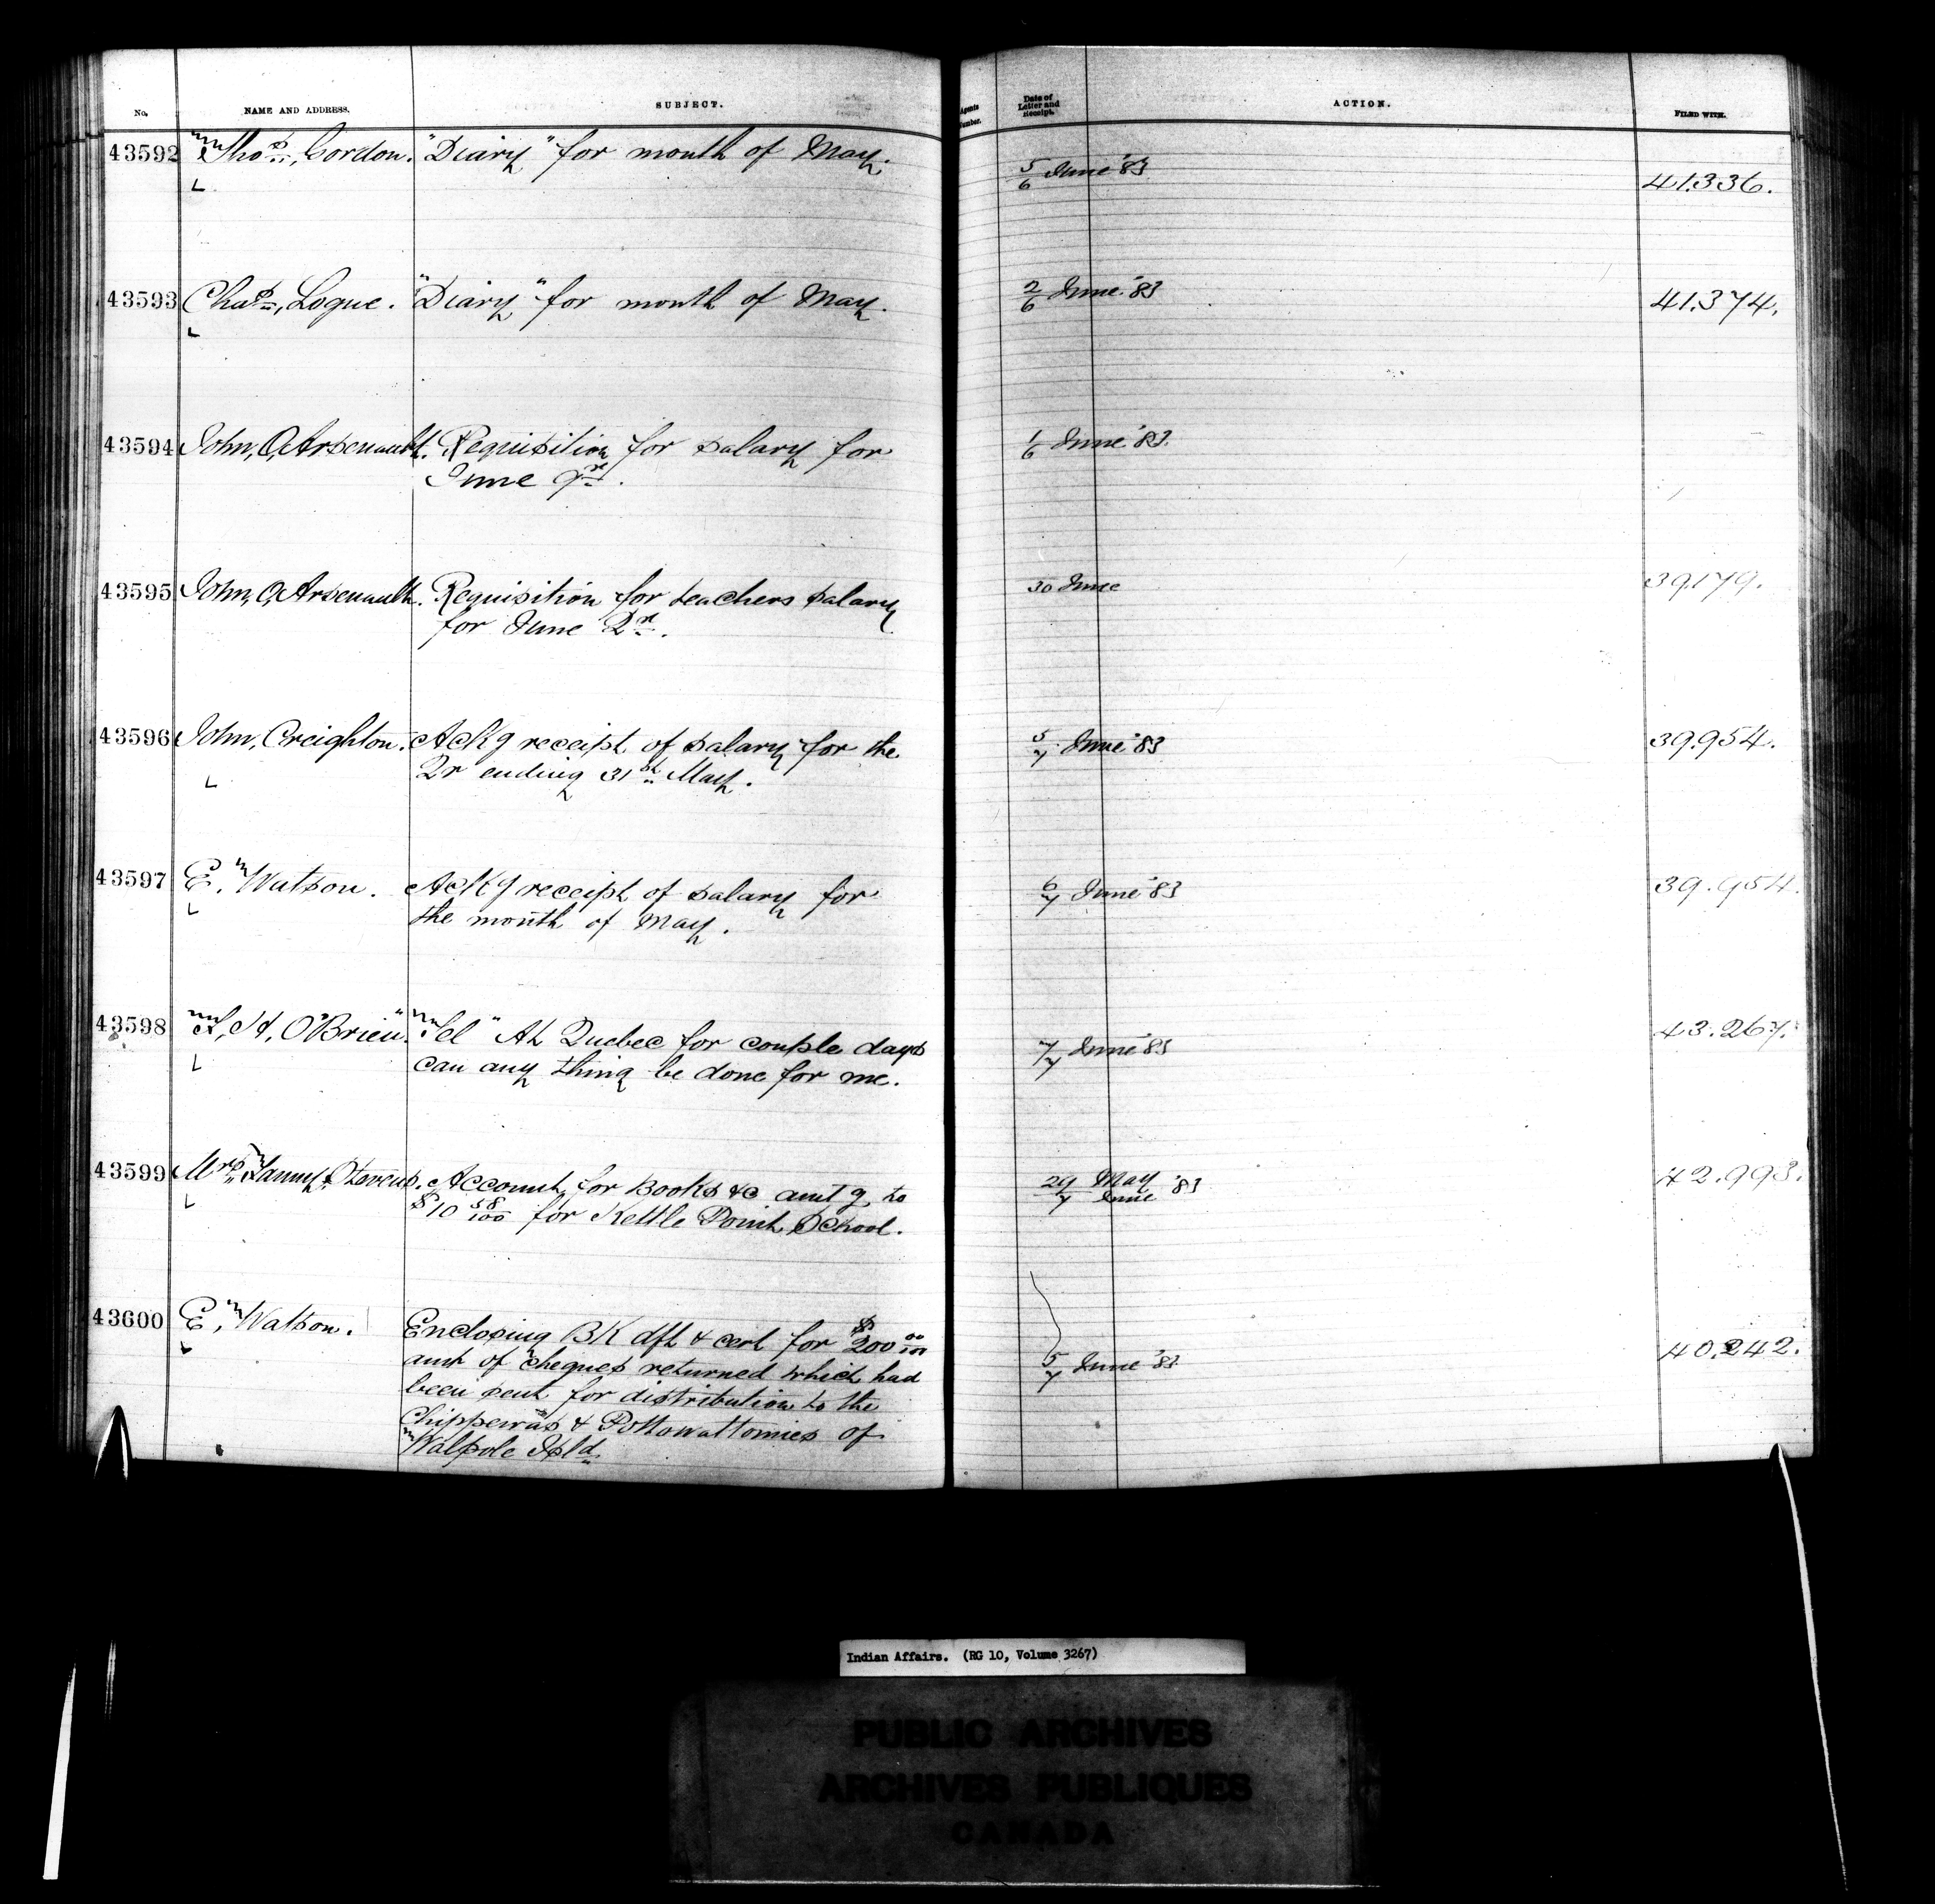 No. NAME AND ADDRESS. SUBJECT. Agents Number. Date of Letter and Receipt. ACTION. FILED WITH.
43592 Thos, Gordon. "Diary" for month of May. 5/6 June '83 41.336.
L
43593 Chas, Logue. "Diary" for month of May. 2/6 June '83 41.374.
L
43594 John, O, Arsenault. Requisition for salary for 1/6 June '83.
June qr.
43595 John, O, Arsenault. Requisition for teachers salary 30 June 39.179.
for June Qr.
43596 John, Creighton. Ackg receipt of salary for the 5/7 June '83 39.954.
L Qr ending 31st May.
43597 E, Watson. Ackg receipt of salary for 6/7 June '83 39.954.
L the month of May.
43598 H, O'Brien. "Tel" At Quebec for couple days 7/7 June '83 43.267.
L can any thing be done for me.
43599 Mrs, Fanny Stevens. Account for Books &c amtg to 29/7 May June '83 42.993.
L $10 58/100 for Kettle Point School.
43600 E, Watson. Enclosing BK dft & cert for $200 00/100 40.242.
L amt of cheques returned which had 5/7 June '83
been sent for distribution to the
Chippewas & Pottowattomies of
Walpole Isld
Indian Affairs. (RG 10, Volume 3267)
PUBLIC ARCHIVES
ARCHIVES PUBLIQUES
CANADA